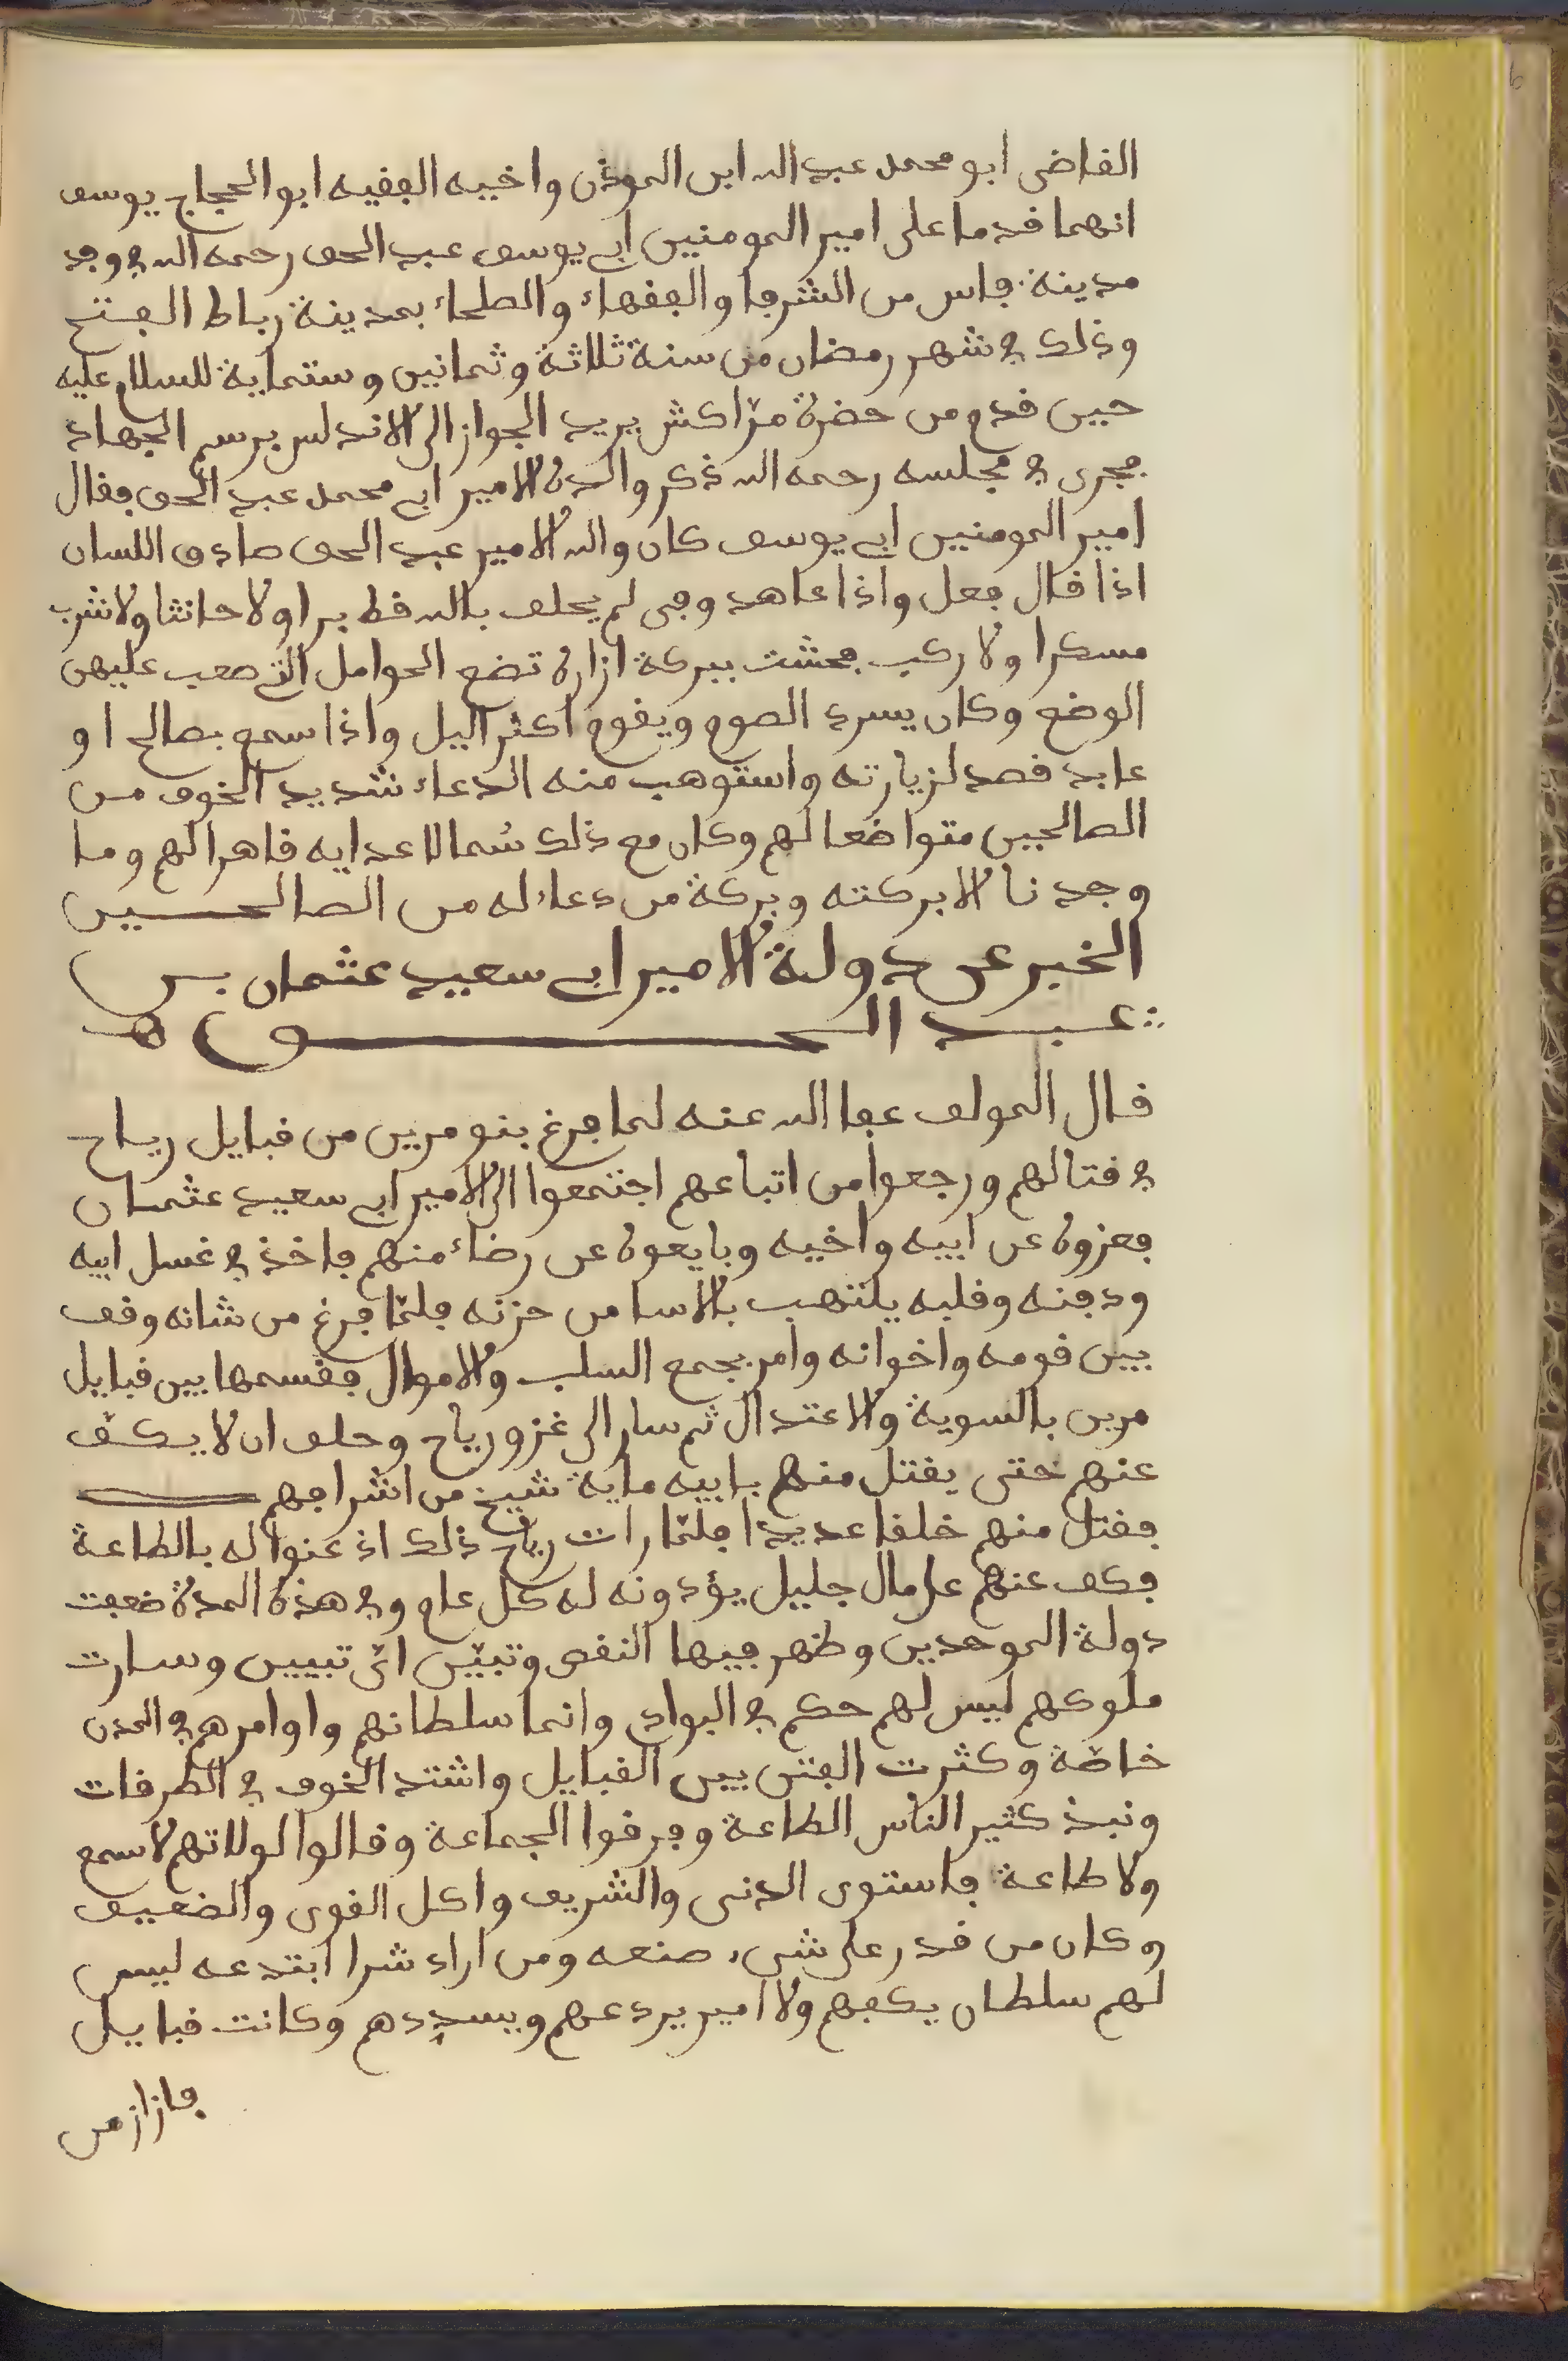 القاضى ابو محمد عبد الله ابن الموذن واخيه الفقيه ابو الحجاج يوسف
انهما قدما على امير المومنين ابى يوسف عبد الحق رحمه الله فى وفد
مدينة فاس من الشرفا والفقهاء والصلحاء بمدينة رباط الفتح
وذلك فى شهر رمضان من سنة ثلاثة وثمانين وستماية للسلام عليه
حين قدم من حضرة مراكش يريد الجواز الى الاندلس برسم الجهاد
فجرى فى مجلسه رحمه الله ذكر والده الامير ابى محمد عبد الحق فقال
امير المومنين ابى يوسف كان والله الامير عبد الحق صادق اللسان
اذا قال فعل واذا عاهد وفى لم يحلف بالله قط برا ولا حانثا ولا شرب
مسكرا ولا ركب فحشت ببركة ازاره تضع الحوامل التى صعب عليهن
الوضع وكان يسرد الصوم ويقوم اكثر اليل واذا سمع بصالح او
عابد قصد لزيارته واستوهب منه الدعاء شديد الخوف من
الصالحين متواضعا لهم وكان مع ذلك سُما لاعدايه قاهرا لهم وما
وجدنا الا بركته وبركة من دعاء له من الصالحسين
الخبر عن دولة الامير ابى سعيد عثمان بن
عبد الحق هـ
قال المولف عفا الله عنه لما فرغ بنو مرين من قبايل رياح
فى قتالهم ورجعوا من اتباعهم اجتمعوا الى الامير ابى سعيد عثمان
فعزوه عن ابيه واخيه وبايعوه عن رضاء منهم فاخذ فى غسل ابيه
ودفنه وقلبه يلتهب بالاسا من حزنه فلمّا فرغ من شانه وقف
بين قومه واخوانه وامر بجمع السلب والاموال فقسمها بين قبايل
مرين بالسوية والاعتدال ثم سار الى غزو رياح وحلف ان لا يكفّ
عنهم حتى يقتل منهم بابيه ماية شيخ من اشرافهم
فقتل منهم خلقا عديدا فلمّا رات رياح ذلك اذ عنوا له بالطاعة
فكف عنهم على مال جليل يؤدونه له كل عام وفى هذه المدة ضعفت
دولة الموحدين وظهر فيها النقص وتبيّن اىّ تبيين وسارت
ملوكهم ليس لهم حكم فى البوادى وانما سلطانهم واوامرهم فى المدن
خاصّة وكثرت الفتن بين القبايل واشتد الخوف فى الطرقات
ونبذ كثير الناس الطاعة وفرقوا الجماعة وقالوا لولاتهم لا سمع
ولا طاعة فاستوى الدنى والشريف واكل القوى والضعيف
وكان من قدر على شىء صنعه ومن اراد شرا ابتدعه ليس
لهم سلطان يكفهم ولا امير يردعهم ويسددهم وكانت قبايل
فازاز من